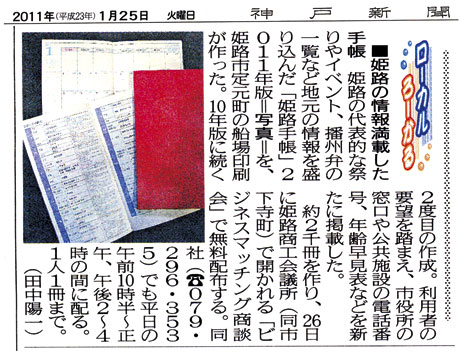 2011年(平成23年)1月25日 火曜日 神戸新聞
ローカル
ろーかる
■姫路の情報満載した
手帳 姫路の代表的な祭
りやイベント、播州弁の
一覧など地元の情報を盛
り込んだ「姫路手帳」2
011年版=写真=を、
姫路市定元町の船場印刷
が作った。10年版に続く
2度目の作成。利用者の
要望を踏まえ、市役所の
窓口や公共施設の電話番
号、年齢早見表などを新
たに掲載した。
約2千冊を作り、26日
に姫路商工会議所(同市
下寺町)で開かれる「ビ
ジネスマッチング商談
会」で無料配布する。同
社(☎079・
296・353
5)でも平日の
午前10時半〜正
午、午後2〜4
時の間に配る。
1人1冊まで。
(田中陽一)